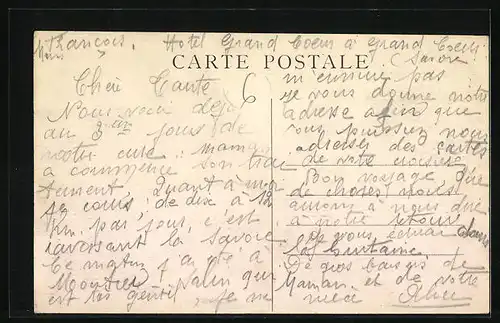 François. Hotel Grand Coeur à Grand Coeur
Mme (Savoie)
CARTE POSTALE
Chère Tante
Nous voici déjà
au 3ème jours de
notre cure : maman
a commencé son trai
tement, Quant à moi
je cours, de dix à 12
km. par jour, c'est
ravissant la Savoie
Ce matin j'ai été à
Moutier, Salin qui
est très gentil je ne
m'ennuie pas
je vous donne notre
adresse afin que
vous puissiez nous
adresser des cartes
de votre croisière
Bon voyage
de choses
aurons à nous dire
à notre retour
Je vous écrirai dans
la huitaine.
De gros baisers de
Maman et de votre
nièce
6